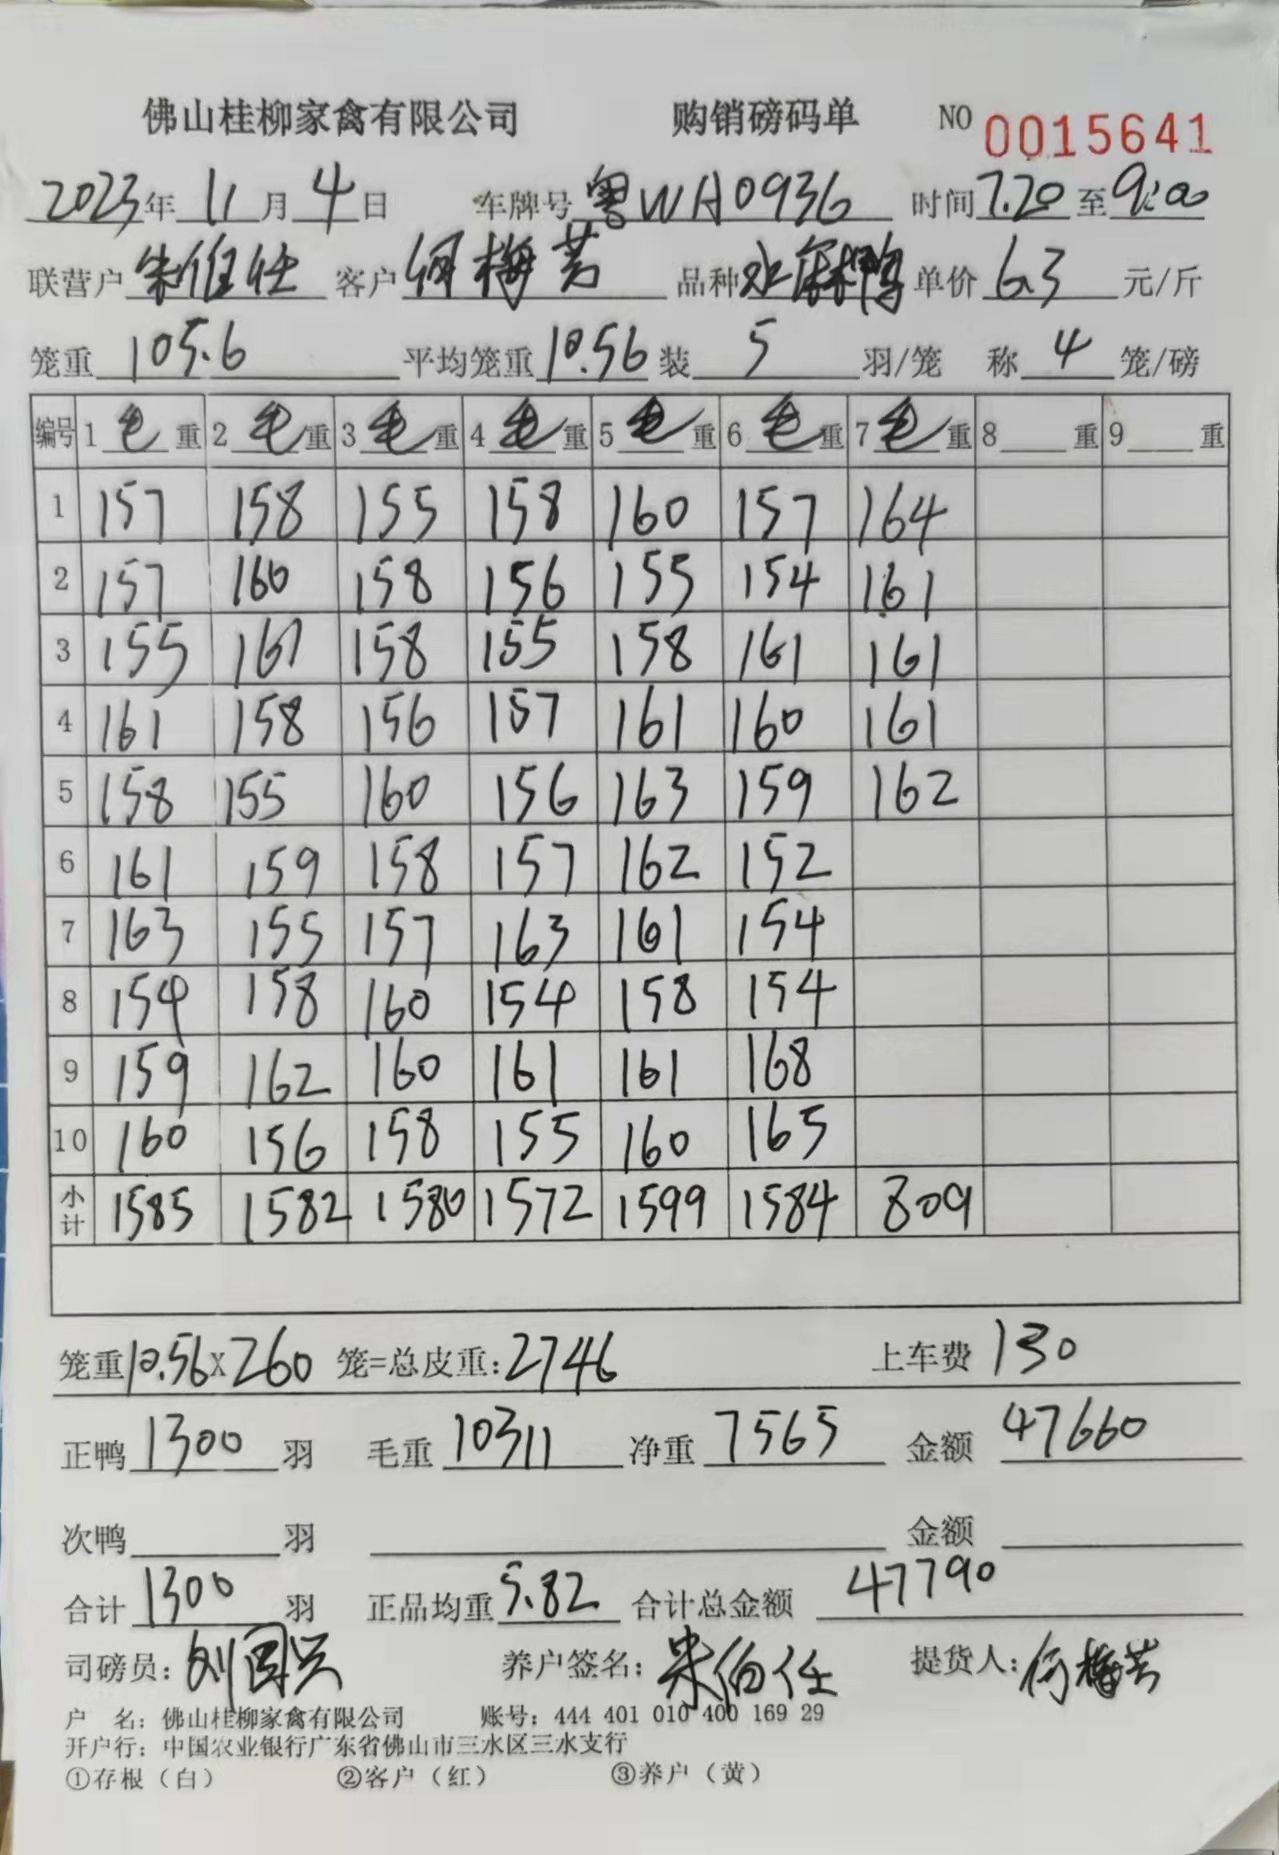 佛山桂柳家禽有限公司 购销磅码单 NO 0015641
2023年 11月 4日 车牌号 粤WA0936 时间 7.20 至 9:00
联营户 朱伯任 客户 何梅芳 品种 水 鸭 单价 6.3 元/斤
笼重 105.6 平均笼重 10.56 装 5 羽/笼 称 4 笼/磅
编号 1毛重 2毛重 3毛重 4毛重 5毛重 6毛重 7毛重 8 重 9 重
1 157 158 155 158 160 157 164
2 157 160 158 156 155 154 161
3 155 161 158 155 158 161 161
4 161 158 156 157 161 160 161
5 158 155 160 156 163 159 162
6 161 159 158 157 162 152
7 163 155 157 163 161 154
8 154 158 160 154 158 154
9 159 162 160 161 161 168
10 160 156 158 155 160 165
小计 1585 1582 1580 1572 1599 1584 809
笼重10.56X260 笼=总皮重:2746 上车费 130
正鸭 1300 羽 毛重 10311 净重 7565 金额 47660
次鸭 羽 金额
合计 1300 羽 正品均重 5.82 合计总金额 47790
司磅员:刘国兴 养户签名:朱伯任 提货人:何梅芳
户 名:佛山桂柳家禽有限公司 账号:444 401 010 400 169 29
开户行:中国农业银行广东省佛山市三水区三水支行
①存根(白) ②客户(红) ③养户(黄)